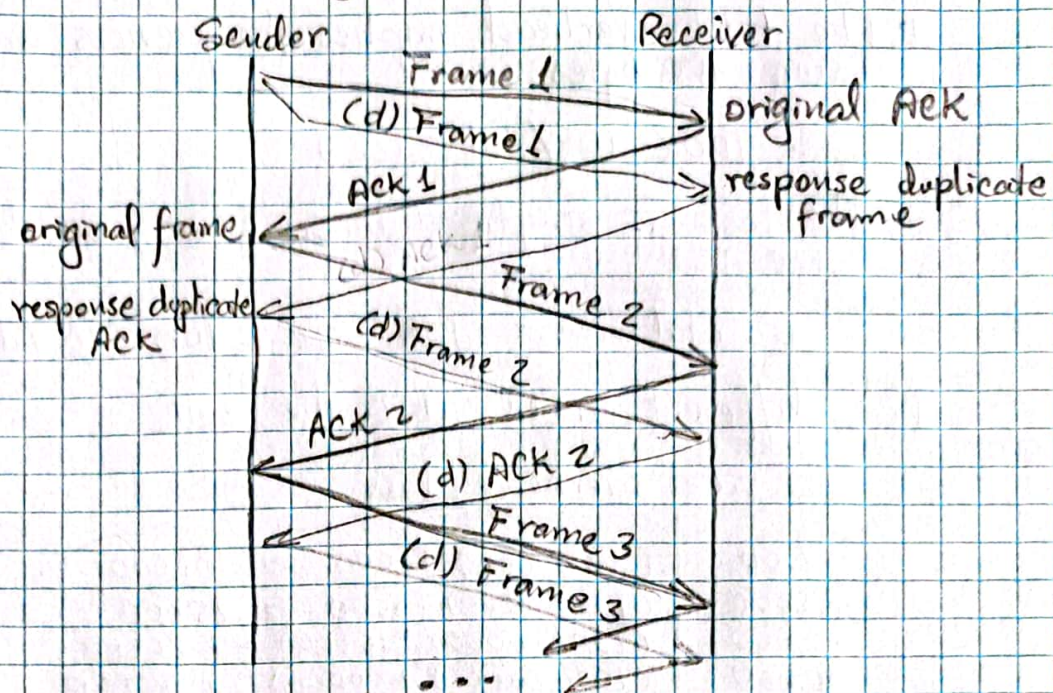 Sender
Receiver
Frame 1
original Ack
(d) Frame 1
Ack 1
response duplicate
frame
original frame
Frame 2
response duplicate
Ack
(d) Frame 2
ACK 2
(d) ACK 2
Frame 3
(d) Frame 3
...